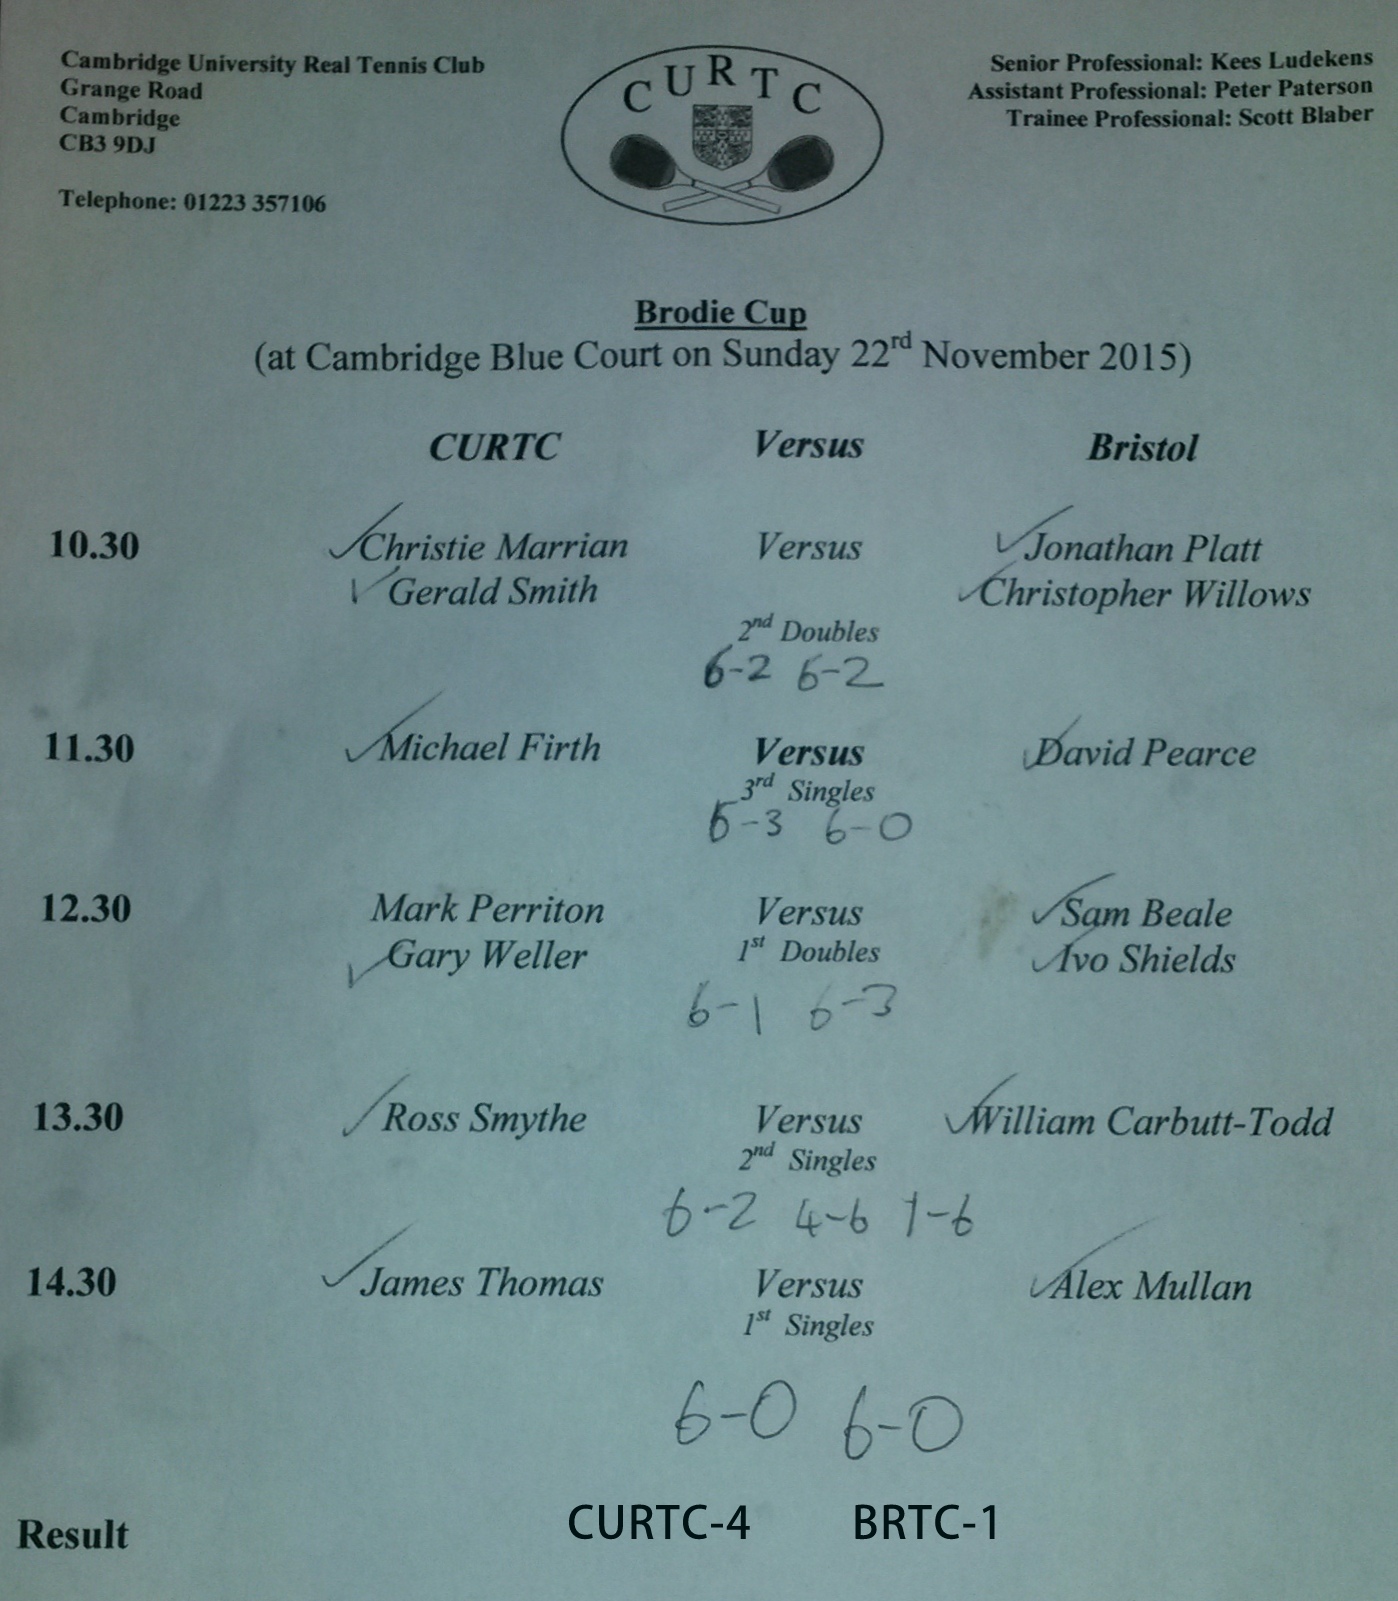 Cambridge University Real Tennis Club
Grange Road
Cambridge
CB3 9DJ
Telephone: 01223 357106
CURTC
Senior Professional: Kees Ludekens
Assistant Professional: Peter Paterson
Trainee Professional: Scott Blaber
Brodie Cup
(at Cambridge Blue Court on Sunday 22rd November 2015)
CURTC Versus Bristol
10.30 Christie Marrian Versus Jonathan Platt
Gerald Smith Christopher Willows
2nd Doubles
6-2 6-2
11.30 Michael Firth Versus David Pearce
3rd Singles
6-3 6-0
12.30 Mark Perriton Versus Sam Beale
Gary Weller 1st Doubles Ivo Shields
6-1 6-3
13.30 Ross Smythe Versus William Carbutt-Todd
2nd Singles
6-2 4-6 1-6
14.30 James Thomas Versus Alex Mullan
1st Singles
6-0 6-0
Result CURTC-4 BRTC-1